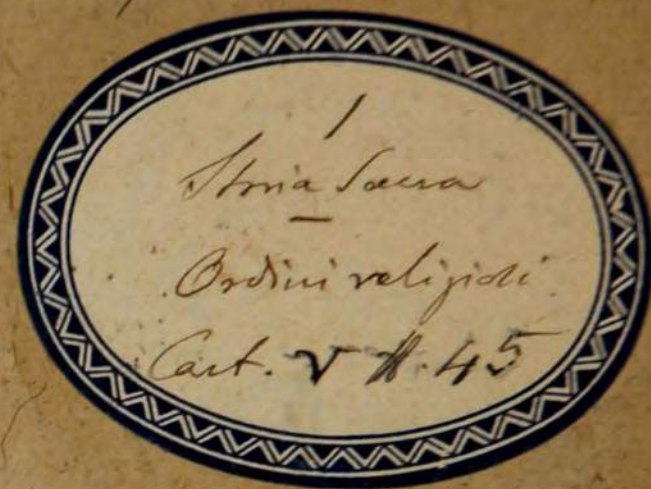 1
Storia Sacra
Ordini religiosi
Cart. V N. 45